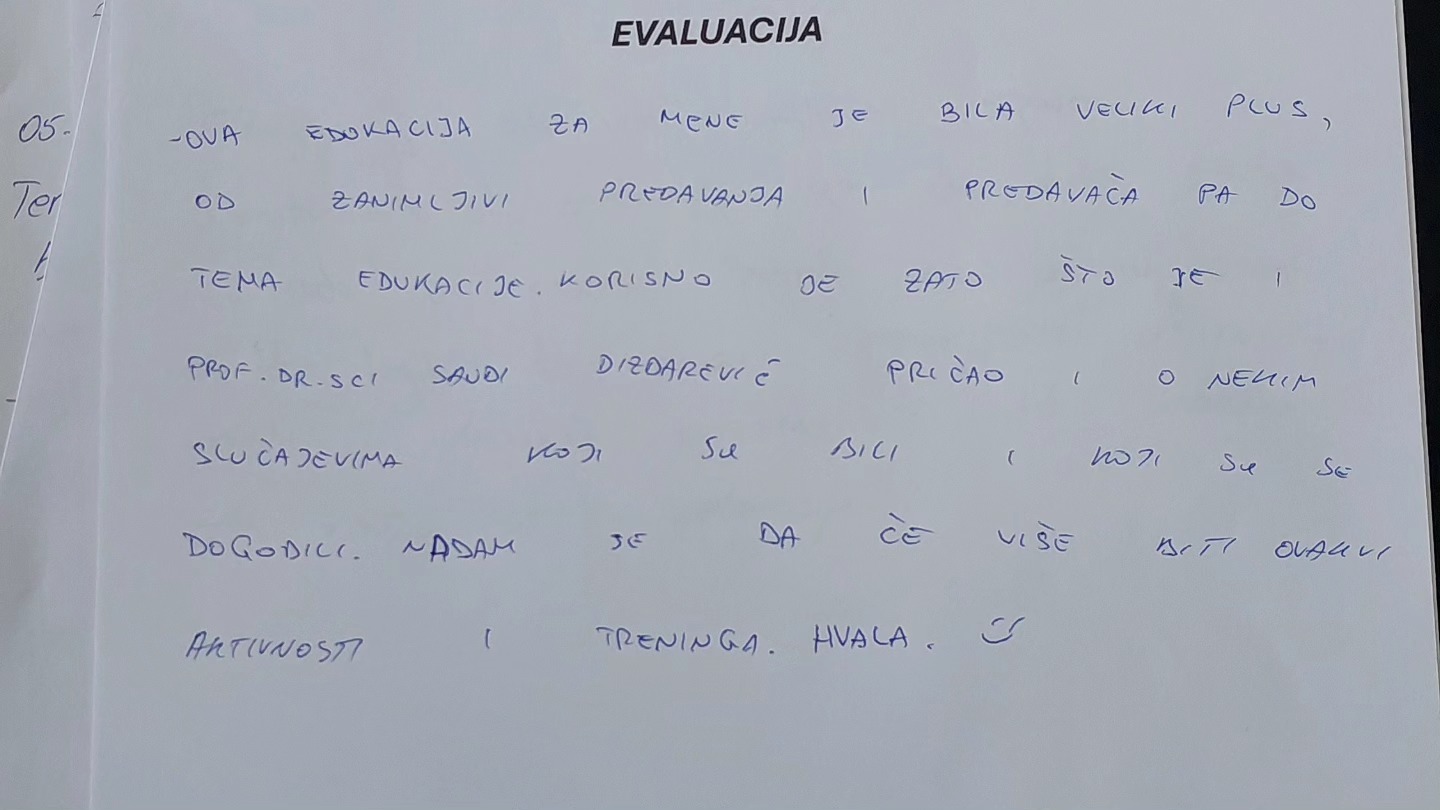 EVALUACIJA
05.
Ter
-OVA EDUKACIJA ZA MENE JE BILA VELIKI PLUS,
OD ZANIMLJIVI PREDAVANJA I PREDAVAČA PA DO
TEMA EDUKACIJE. KORISNO JE ZATO ŠTO JE I
PROF.DR.SCI SAUDI DIZDAREVIĆ PRIČAO I O NEKIM
SLUČAJEVIMA KOJI SU BILI I KOJI SU SE
DOGODILI. NADAM SE DA ČE VIŠE BITI OVAKVI
AKTIVNOSTI I TRENINGA. HVALA. ☺